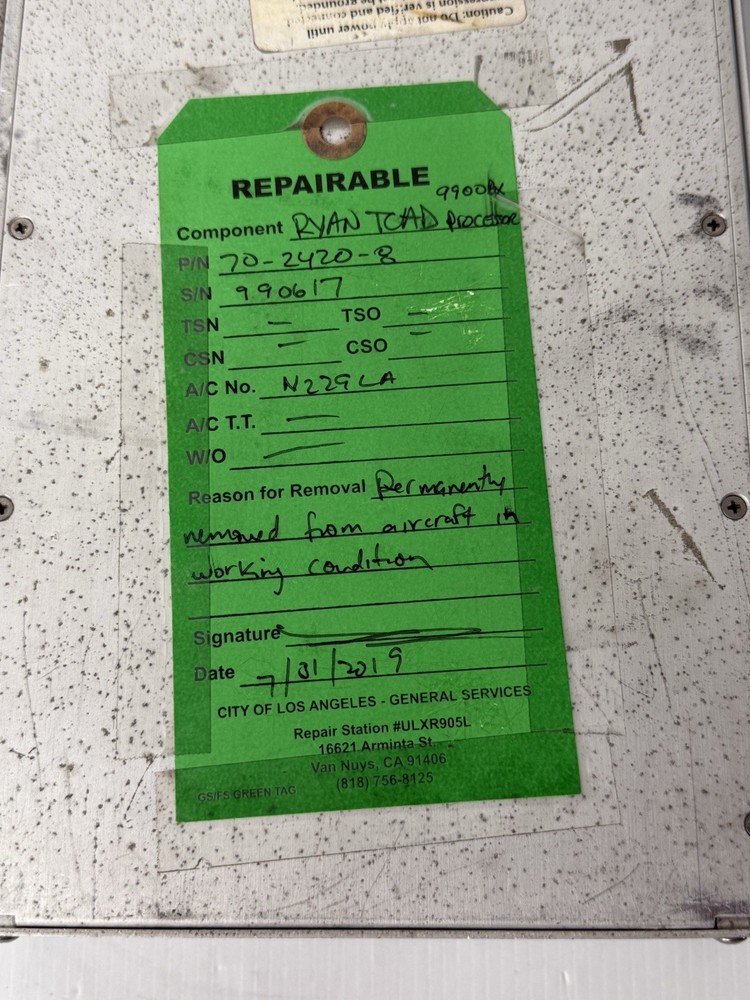 Caution: Do not apply power until
REPAIRABLE
9900BX
Component RYAN TCAD Processor
P/N 70-2420-8
S/N 990617
TSN — TSO —
CSN — CSO —
A/C No. N229LA
A/C T.T. —
W/O —
Reason for Removal Permanently
removed from aircraft in
working condition
Signature
Date 7/31/2019
CITY OF LOS ANGELES - GENERAL SERVICES
Repair Station #ULXR905L
16621 Arminta St.
Van Nuys, CA 91406
(818) 756-8125
GS/FS GREEN TAG